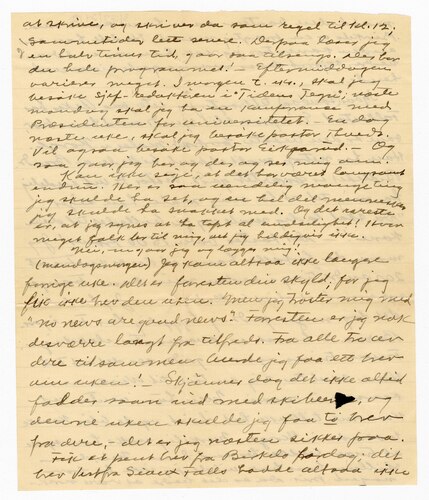 at skrive, og skriver da som regel til kl. 12;
sommetider lidt senere. Derpaa læser jeg
en halv times tid, gaar saa tilsengs. Der har
du hele programmet! – Eftermiddagen
varierer meget. I morgen f. eks. skal jeg
besøke i "Tidens Tegn"; næste
mandag skal jeg ha en konferanse med
Præsidenten for universitetet. – En dag
næste uke, skal jeg besøke pastor
Vil ogsaa besøke pastor – Og
saa gaar jeg her og der, og ser mig om!
Kan ikke sige, at det har været langsomt
endnu. Her er saa uendelig mange ting
jeg skulde ha set, og en hel del mennesker
jeg skulde ha snakket med. Og det rareste
er, at jeg synes at ha tapt al Hvor
meget folk ser til mig, ved jeg heldigvis ikke.
Nei, nu gaar jeg og lægger mig.
(Mandagsmorgen) Jeg kom altsaa ikke længere
forrige uke. Det er forresten din skyld; for jeg
fik ikke brev den uken. Men jeg trøster mig med
"no news are good news". Forresten er jeg nok
desværre langt fra tilfreds. Fra alle tre av
dere tilsammen burde jeg faa ett brev
om uken! – Skjønner dog det ikke altid
falder saan ind med skibene, og
denne uken skulde jeg faa to brev
fra dere, – det er jeg næsten sikker paa.
Fik et pent brev fra Birkelo fordag; det
brev fra Sioux Falls hadde altsaa ikke